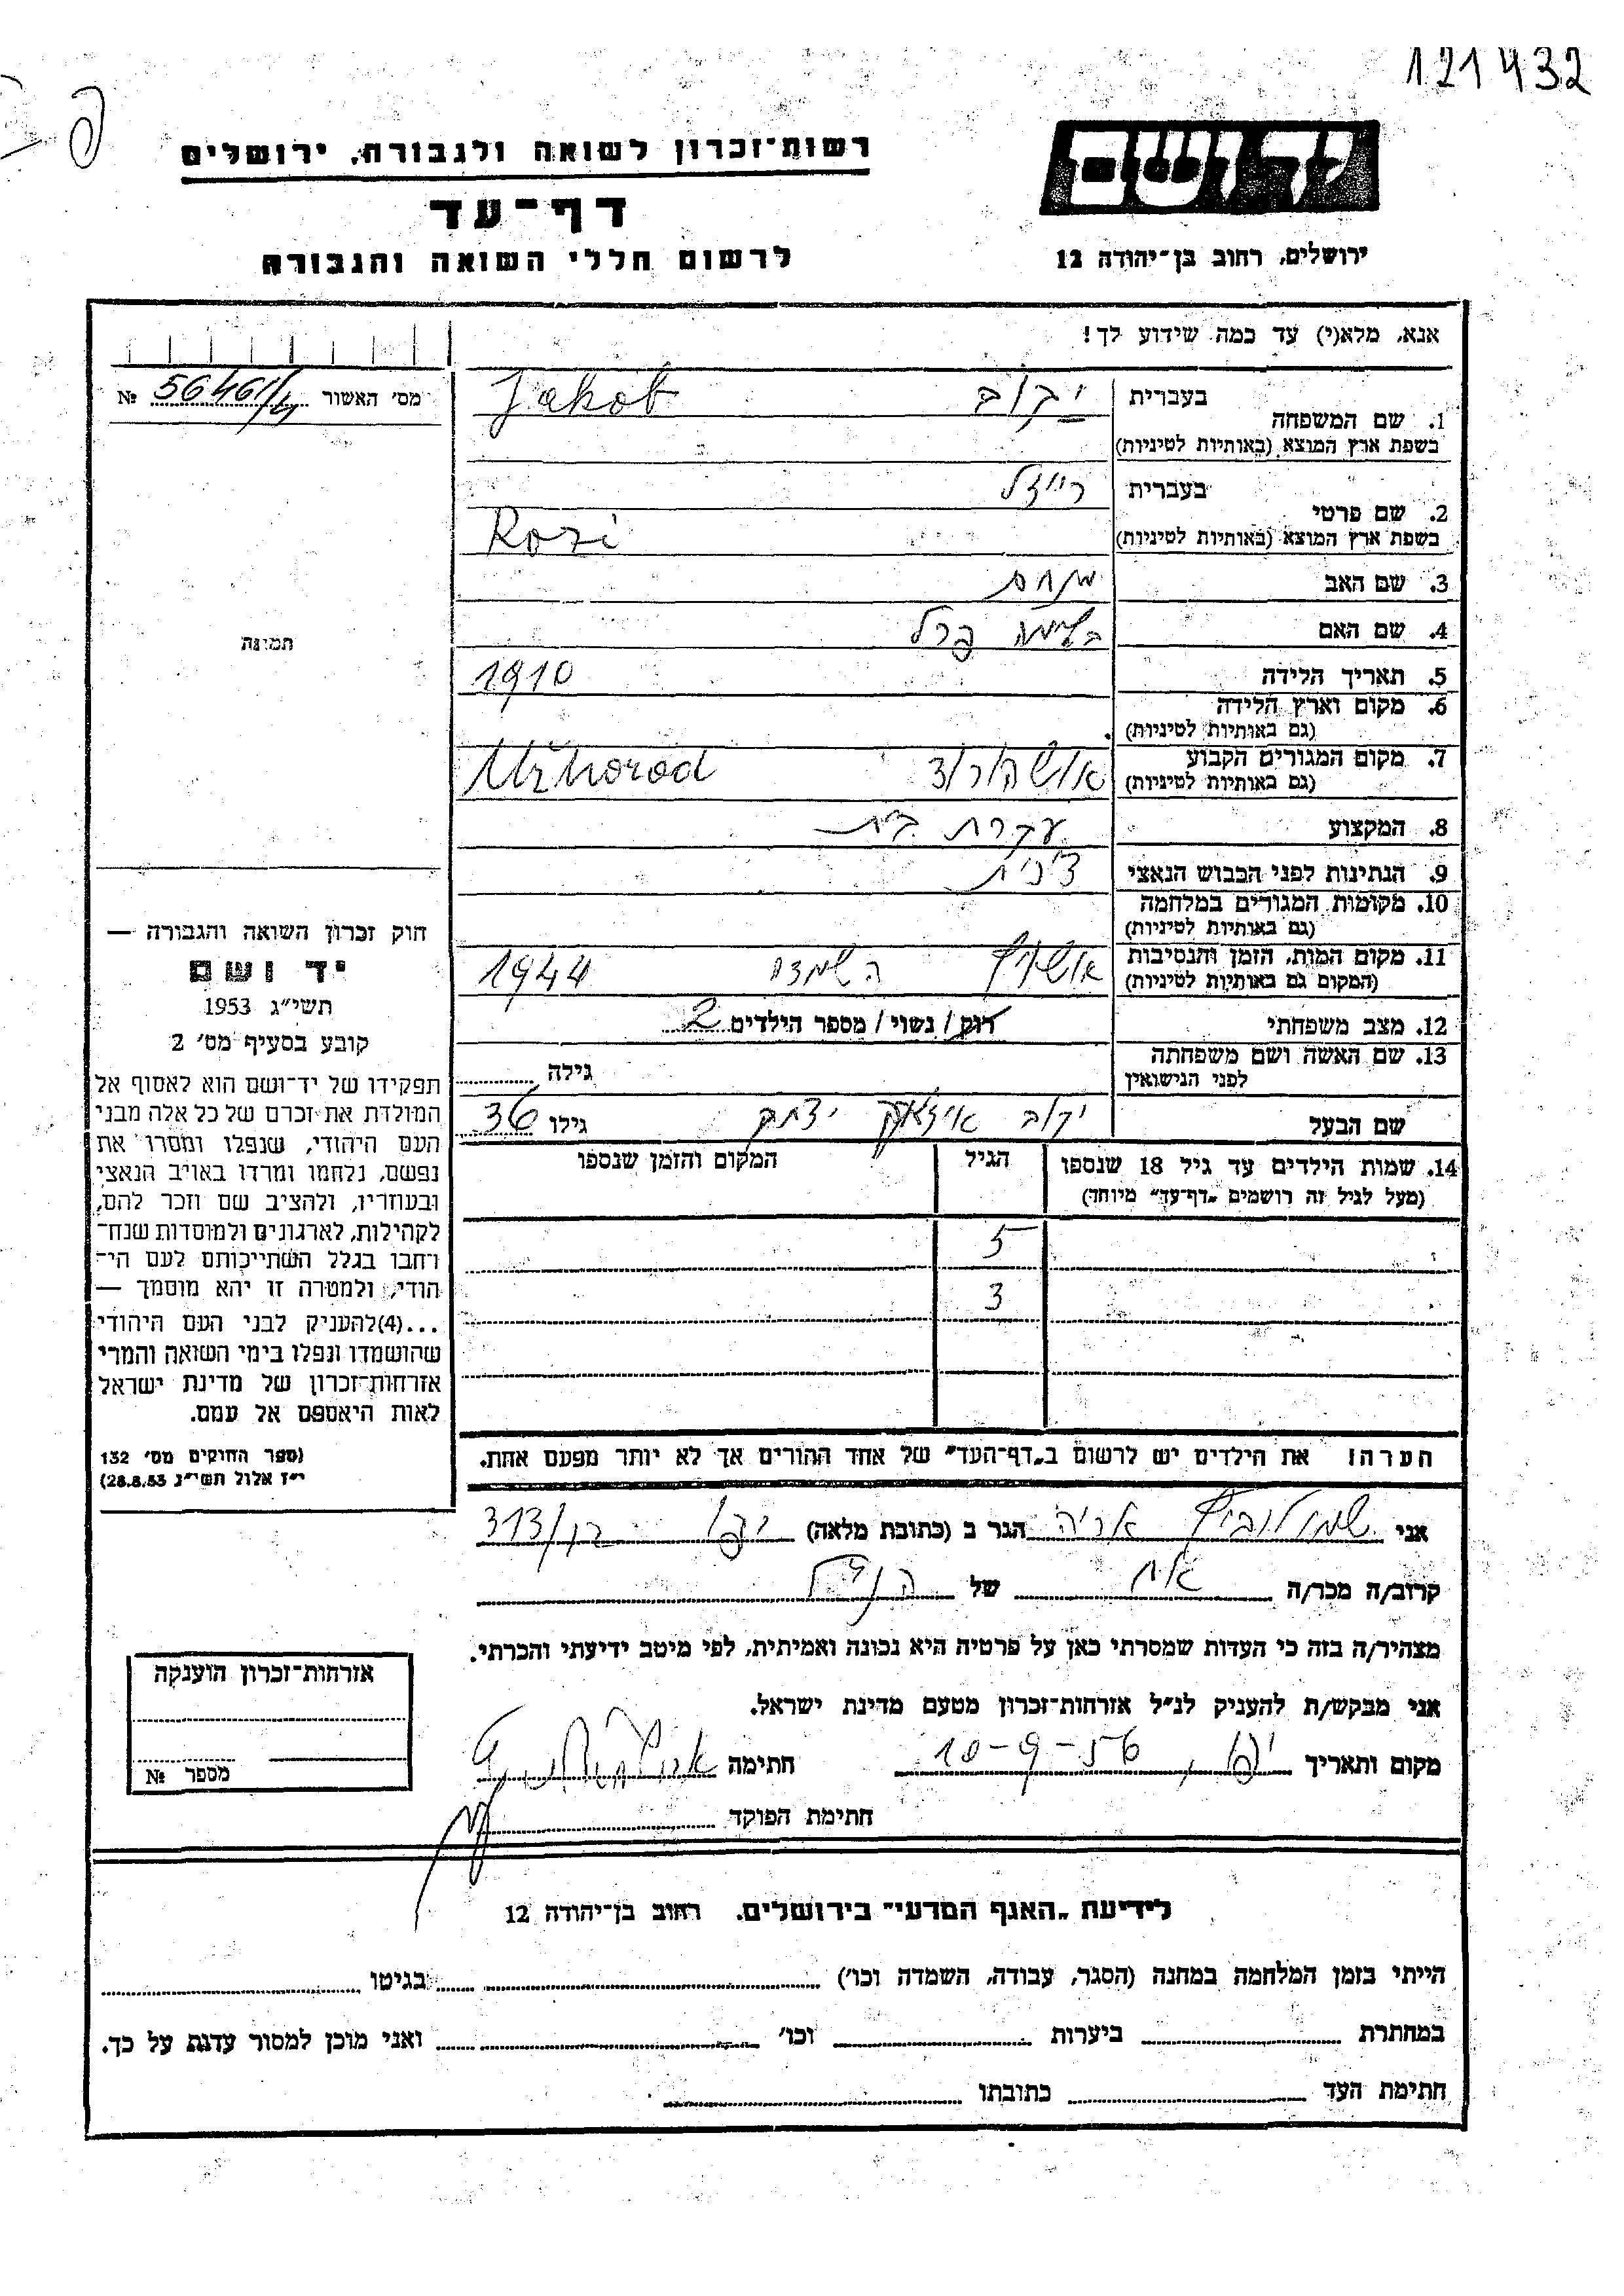 121432
רשות־זכרון לשואה ולגבורה, ירושלים
יד ושם
דף־עד
לרשום חללי השואה והגבורה
ירושלים, רחוב בן־יהודה 12
אנא, מלא(י) עד כמה שידוע לך!
מס׳ האשור 56461/4 №
1. שם המשפחה בעברית יקוב Jakob
בשפת ארץ המוצא (באותיות לטיניות)
2. שם פרטי בעברית רייזל
בשפת ארץ המוצא (באותיות לטיניות) Rozi
3. שם האב מנחם
4. שם האם פרל
5. תאריך הלידה 1910
6. מקום וארץ הלידה
(גם באותיות לטיניות)
7. מקום המגורים הקבוע אושהורוד Užhorod
(גם באותיות לטיניות)
8. המקצוע עקרת בית
9. הנתינות לפני הכבוש הנאצי צ׳כית
10. מקומות המגורים במלחמה
(גם באותיות לטיניות)
11. מקום המות, הזמן והנסיבות אושויץ השמדה 1944
(המקום גם באותיות לטיניות)
12. מצב משפחתי רוק/ נשוי/ מספר הילדים 2
13. שם האשה ושם משפחתה
לפני הנישואין גילה
שם הבעל יקוב איזאק יצחק גילו 36
14. שמות הילדים עד גיל 18 שנספו הגיל המקום והזמן שנספו
(מעל לגיל זה רושמים „דף־עד״ מיוחד)
5
3
הערה! את הילדים יש לרשום ב„דף־העד״ של אחד ההורים אך לא יותר מפעם אחת.
תמונה
חוק זכרון השואה והגבורה —
יד ושם
תשי״ג 1953
קובע בסעיף מס׳ 2
תפקידו של יד־ושם הוא לאסוף אל
המולדת את זכרם של כל אלה מבני
העם היהודי, שנפלו ומסרו את
נפשם, נלחמו ומרדו באויב הנאצי
ובעוזריו, ולהציב שם וזכר להם,
לקהילות, לארגונים ולמוסדות שנח־
רחבו בגלל השתייכותם לעם הי־
הודי, ולמטרה זו יהא מוסמך —
...(4)להעניק לבני העם היהודי
שהושמדו ונפלו בימי השואה והמרי
אזרחות־זכרון של מדינת ישראל
לאות היאספם אל עמם.
(ספר החוקים מס׳ 132
י״ז אלול תשי״ג 28.8.53)
אני שמולוביץ אריה הגר ב (כתובת מלאה) יפו 313/
קרוב/ה מכר/ה אח של הנ״ל
מצהיר/ה בזה כי העדות שמסרתי כאן על פרטיה היא נכונה ואמיתית, לפי מיטב ידיעתי והכרתי.
אני מבקש/ת להעניק לנ״ל אזרחות־זכרון מטעם מדינת ישראל.
מקום ותאריך יפו, 10-9-56 חתימה
חתימת הפוקד
אזרחות־זכרון הוענקה
מספר №
לידיעת „האגף המדעי״ בירושלים, רחוב בן־יהודה 12
הייתי בזמן המלחמה במחנה (הסגר, עבודה, השמדה וכו׳) בגיטו
במחתרת ביערות וכו׳ ואני מוכן למסור עדות על כך.
חתימת העד כתובתו